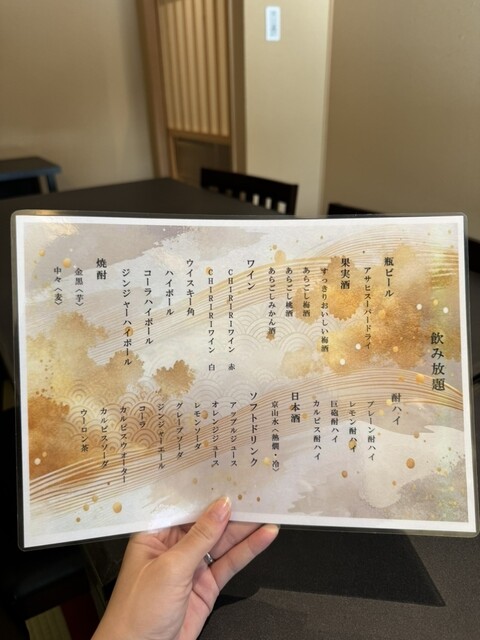 飲み放題
瓶ビール
アサヒスーパードライ
果実酒
すっきりおいしい梅酒
あらごし梅酒
あらごし桃酒
あらごしみかん酒
ワイン
CHIRIRIワイン 赤
CHIRIRIワイン 白
ウイスキー角
ハイボール
コーラハイボール
ジンジャーハイボール
焼酎
金黒〈芋〉
中々〈麦〉
酎ハイ
プレーン酎ハイ
レモン酎ハイ
巨砲酎ハイ
カルピス酎ハイ
日本酒
京山水〈熱燗・冷〉
ソフトドリンク
アップルジュース
オレンジジュース
レモンソーダ
グレープソーダ
ジンジャーエール
コーラ
カルピスウォーター
カルピスソーダ
ウーロン茶